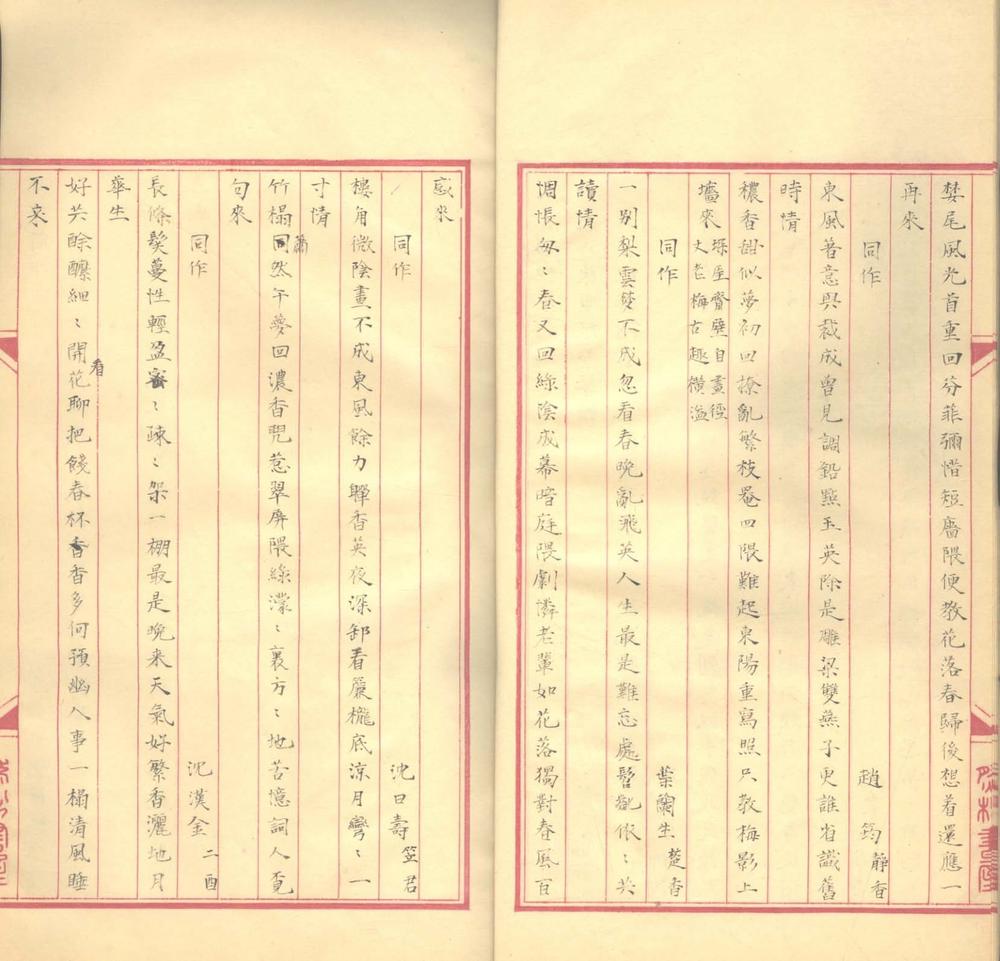 婪尾風光首重回芬菲彌惜短牆隈便教花落春歸後想着還應一
再來
同作 趙筠靜香
東風著意與裁成曾見調鉛點玉英除是雕梁雙燕子更誰省識舊
時情
穠香甜似夢初回撩亂繁枝罨四隈難起東陽重寫照只教梅影上
牆來琛生齋壁自畫徑丈老梅古趣橫溢
同作 葉蘭生楚香
一別梨雲夢不成忽看春晚亂飛英人生最是難忘處髻豔依〻共
讀情
惆悵匆〻春又回綠陰成幕暗庭隈劇憐老輩如花落獨對春風百
感來
同作 沈曰壽笠君
樓角微陰畫不成東風餘力嚲香英夜深卸看簾櫳底涼月彎〻一
寸情
竹榻蕭然午夢回濃香兜惹翠屏隈綠濛〻裏方〻地苦憶詞人覓
句來
同作 沈漢金二酉
長條鬖蔓性輕盈密〻疎〻架一棚最是晚来天氣好繁香灑地月
華生
好共酴醾細〻開看花聊把餞春杯香香多何預幽人事一榻清風睡
不來